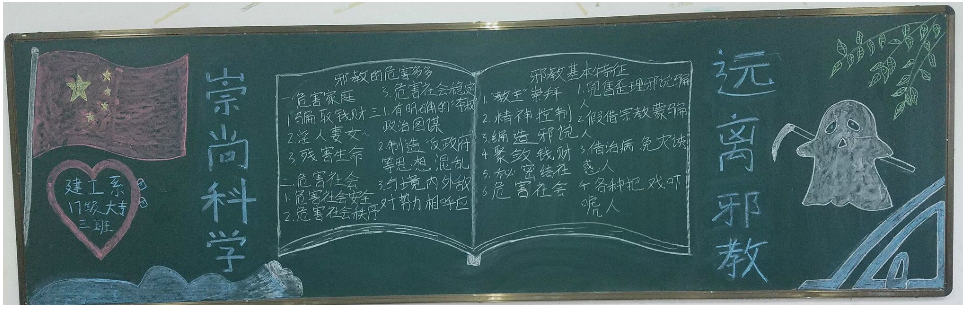 崇尚科学
建工系
17级大专
三班
邪教的危害多多
一危害家庭
1.骗取钱财
2.淫人妻女
3.残害生命
二危害社会
1.危害社会安全
2.危害社会秩序
3.危害社会稳定
三1.有明确的
政治图谋
2.制造反政府
等思想混乱
3.与境内外敌
对势力相呼应
邪教基本特征
1.教主崇拜
2.精神控制
3.编造邪说
4.聚敛钱财
5.秘密结社
6.危害社会
1.歪理邪说骗
人
2.假借宗教蒙骗
人
3.借治病免灾诱
惑人
4.各种把戏吓
唬人
远离邪教